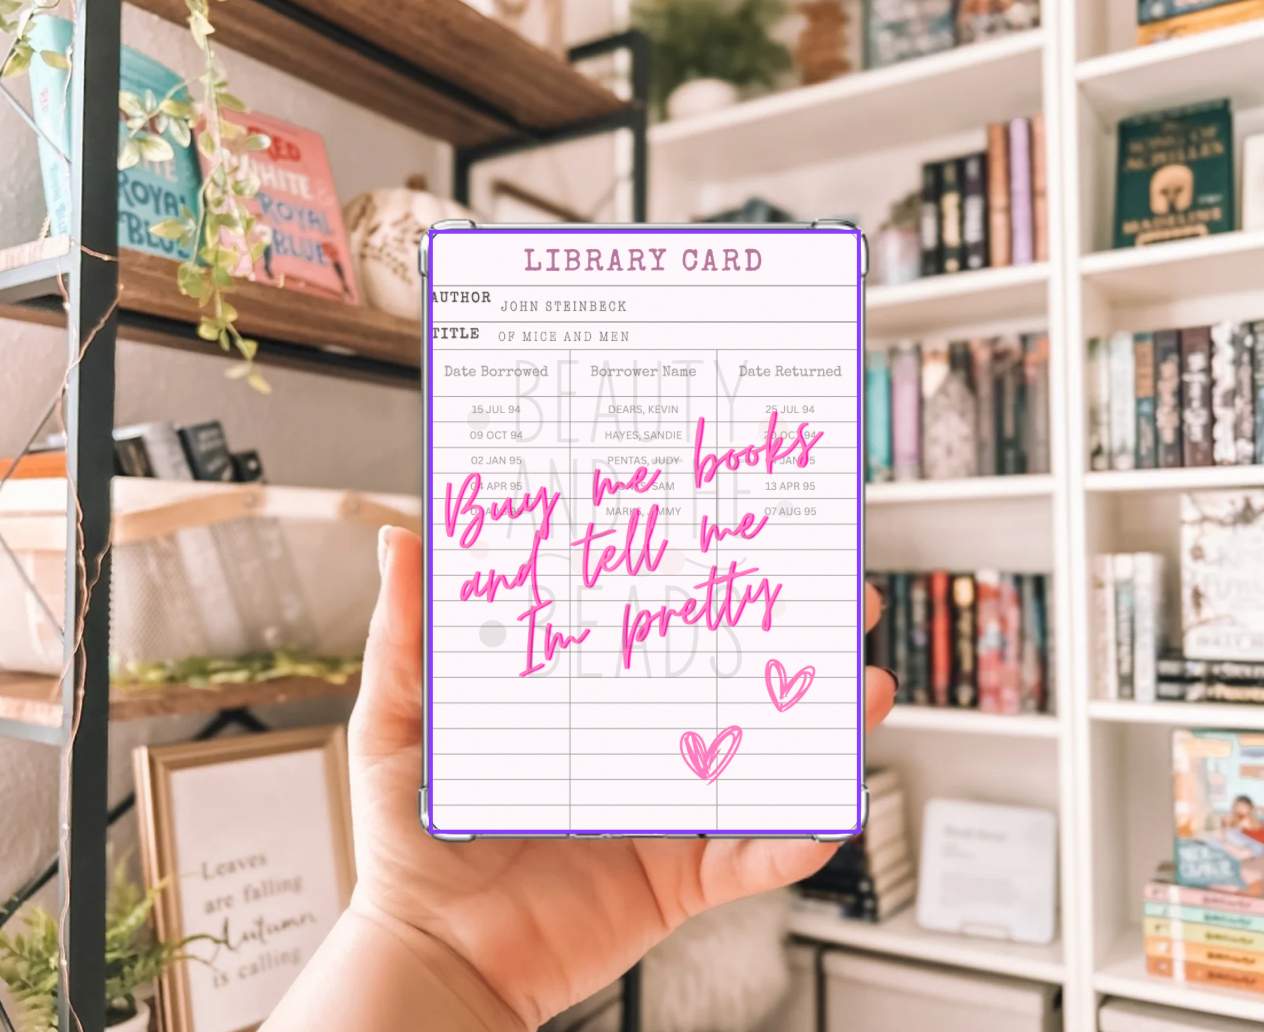 RED
WHITE
ROYAL
BLUE
ROYAL
BLUE
ACHILLES
MADELINE
LIBRARY CARD
AUTHOR JOHN STEINBECK
TITLE OF MICE AND MEN
BEAUTY
AND THE
BEADS
Date Borrowed Borrower Name Date Returned
15 JUL 94 DEARS, KEVIN 25 JUL 94
09 OCT 94 HAYES, SANDIE 20 OCT 94
02 JAN 95 PENTAS, JUDY JAN 95
04 APR 95 SAM 13 APR 95
MARKS, JIMMY 07 AUG 95
Buy me books
and tell me
Im pretty
Leaves
are falling
Autumn
is calling